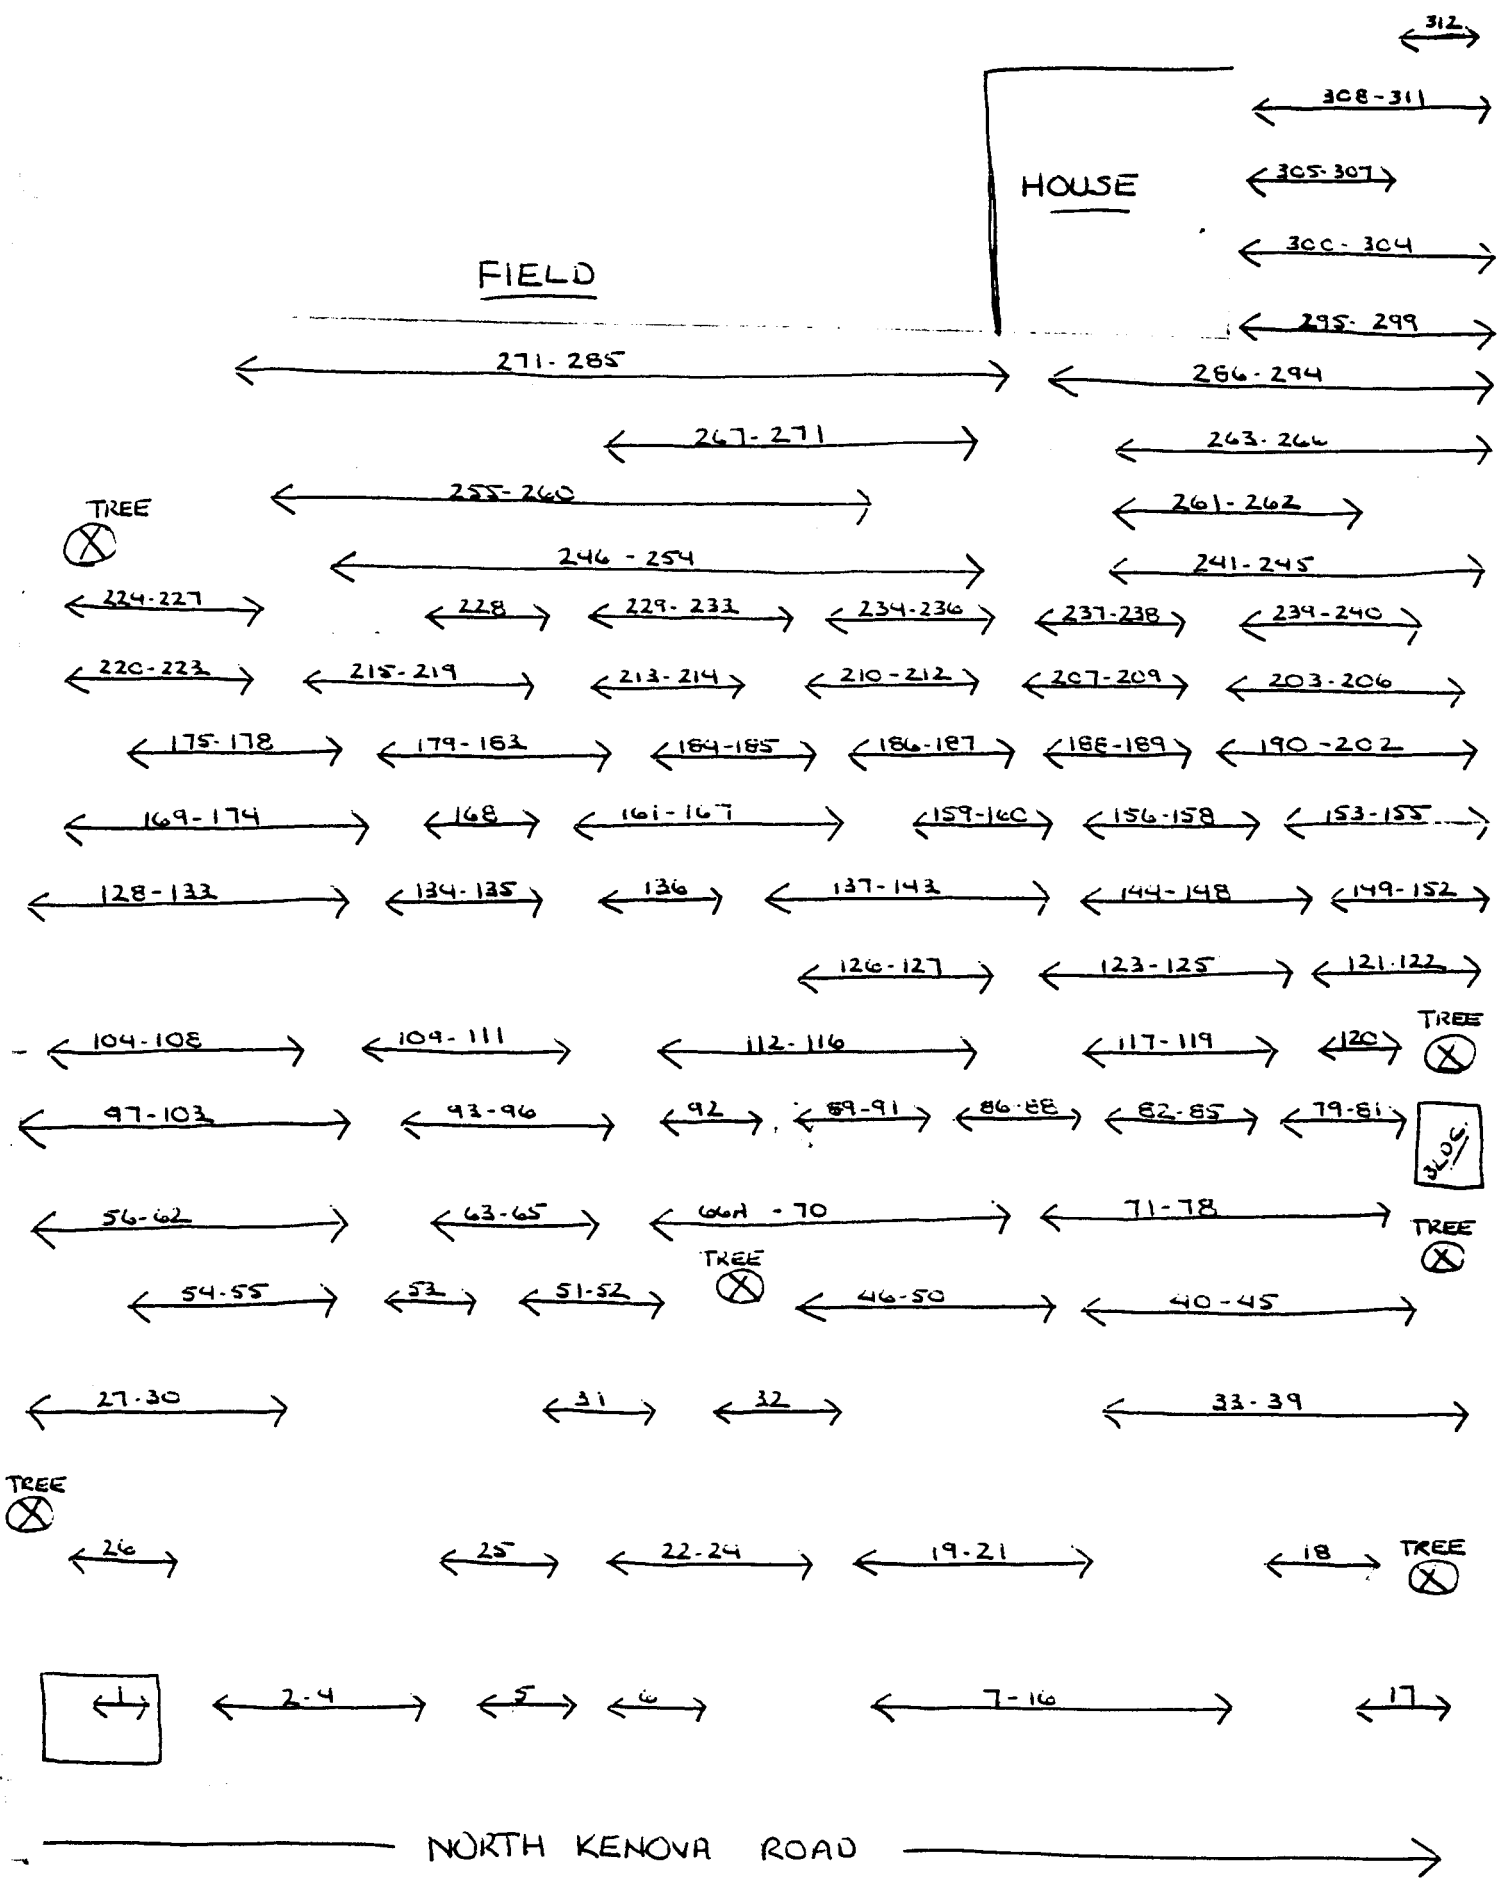 312
308-311
HOUSE
305-307
300-304
FIELD
295-299
271-285 286-294
267-271 263-266
255-260 261-262
TREE
246-254 241-245
224-227 228 229-233 234-236 237-238 239-240
220-223 215-219 213-214 210-212 207-209 203-206
175-178 179-183 184-185 186-187 188-189 190-202
169-174 168 161-167 159-160 156-158 153-155
128-133 134-135 136 137-143 144-148 149-152
126-127 123-125 121-122
TREE
104-108 109-111 112-116 117-119 120
97-103 93-96 92 89-91 86-88 82-85 79-81
BLDG.
56-62 63-65 66A - 70 71-78
TREE
TREE
54-55 53 51-52 46-50 40-45
27-30 31 32 33-39
TREE
26 25 22-24 19-21 18 TREE
1 2-4 5 6 7-16 17
NORTH KENOVA ROAD